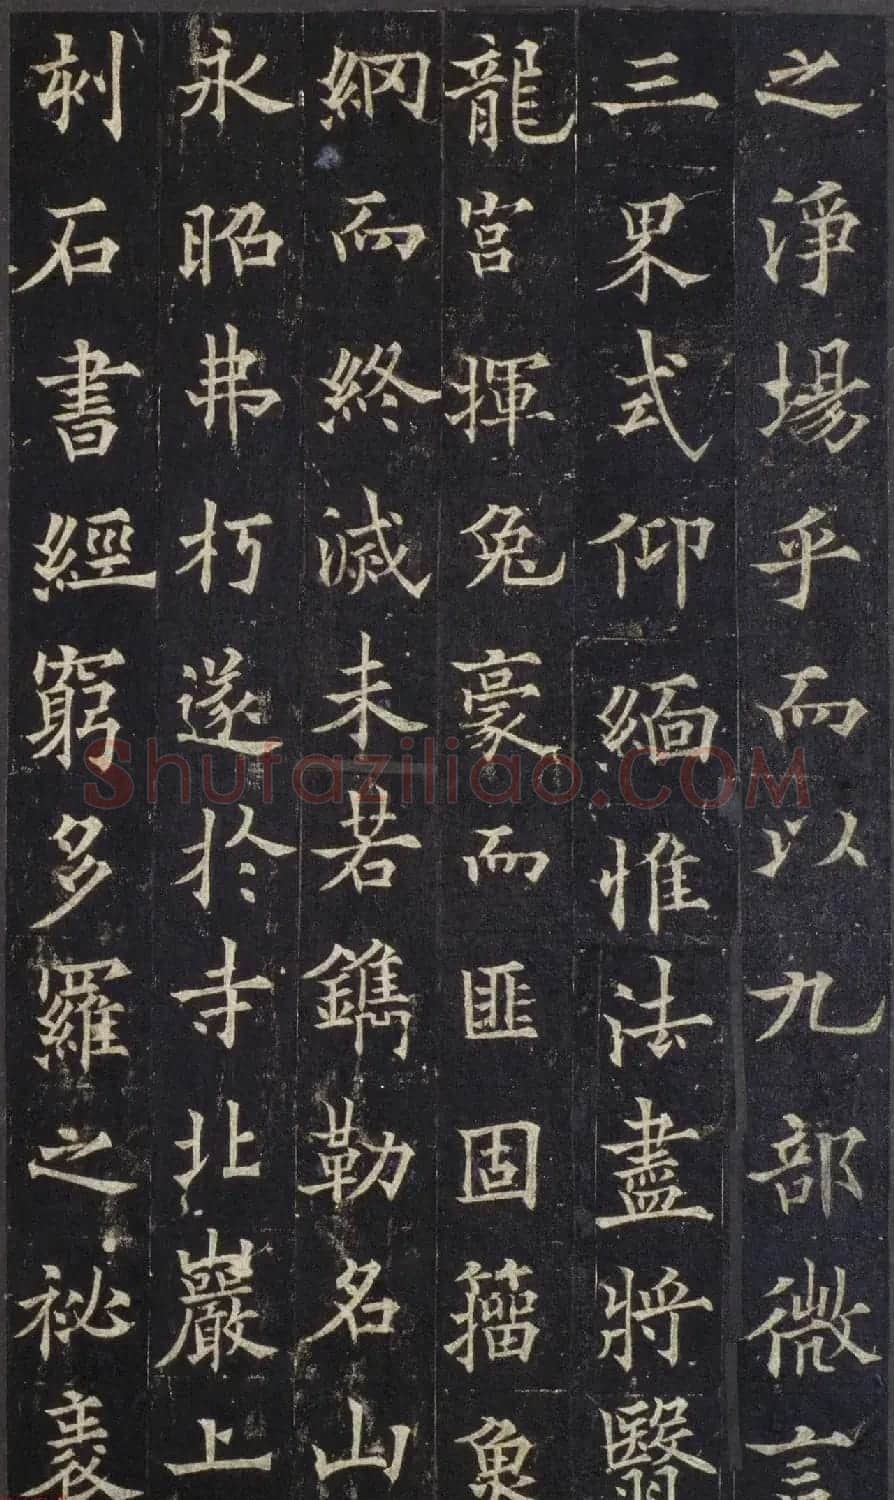 之淨場乎而以九部微言
三界式仰緬惟法盡將翳
龍宮揮兔豪而匪固籀魚
網而終滅未若鐫勒名山
永昭弗朽遂於寺北巖上
刻石書經窮多羅之祕袠
Shufaziliao.COM